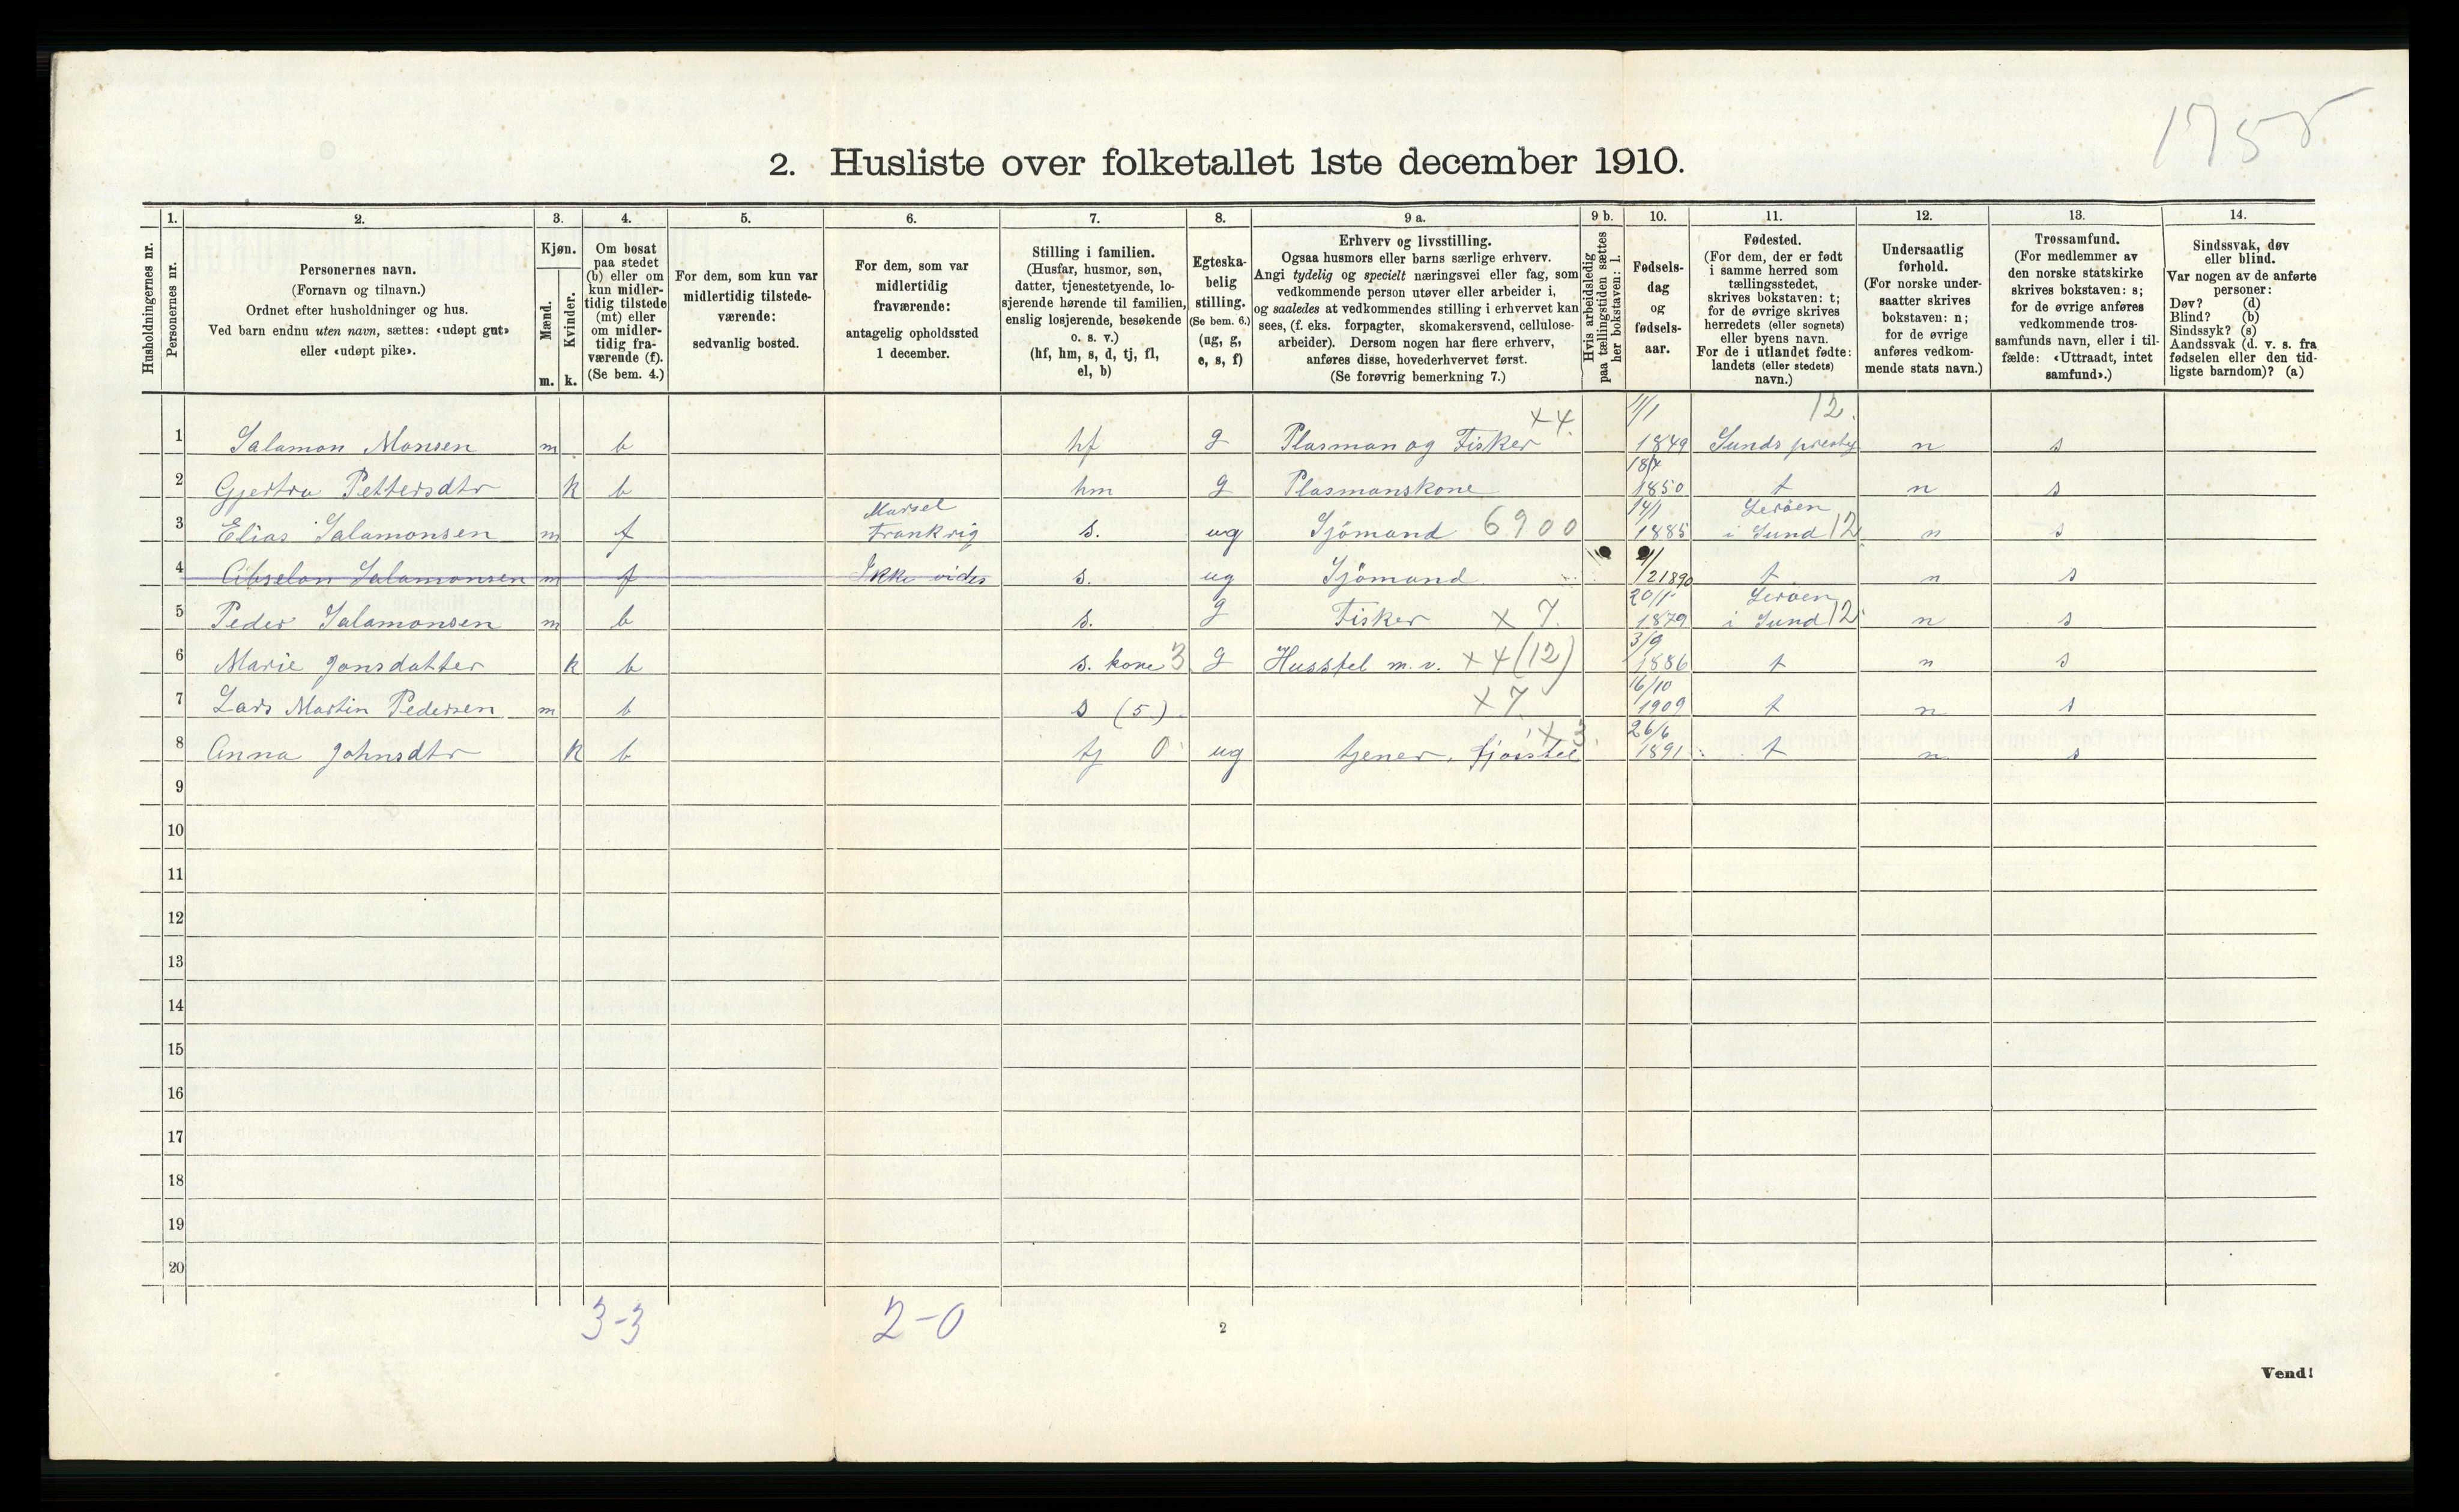 1755
2. Husliste over folketallet 1ste december 1910.
1. 2. 3. 4. 5. 6. 7. 8. 9 a. 9 b. 10. 11. 12. 13. 14.
Husholdningernes nr.
Personernes nr.
Personernes navn.
(Fornavn og tilnavn.)
Ordnet efter husholdninger og hus.
Ved barn endnu uten navn, sættes: «udøpt gut»
eller «udøpt pike».
Kjøn.
Mænd.
Kvinder.
m. k.
Om bosat
paa stedet
(b) eller om
kun midler-
tidig tilstede
(mt) eller
om midler-
tidig fra-
værende (f).
(Se bem. 4.)
For dem, som kun var
midlertidig tilstede-
værende:
sedvanlig bosted.
For dem, som var
midlertidig
fraværende:
antagelig opholdssted
1 december.
Stilling i familien.
(Husfar, husmor, søn,
datter, tjenestetyende, lo-
sjerende hørende til familien,
enslig losjerende, besøkende
o. s. v.)
(hf, hm, s, d, tj, fl,
el, b)
Egteska-
belig
stilling.
(Se bem. 6.)
(ug, g,
e, s, f)
Erhverv og livsstilling.
Ogsaa husmors eller barns særlige erhverv.
Angi tydelig og specielt næringsvei eller fag, som
vedkommende person utøver eller arbeider i,
og saaledes at vedkommendes stilling i erhvervet kan
sees, (f. eks. forpagter, skomakersvend, cellulose-
arbeider). Dersom nogen har flere erhverv,
anføres disse, hovederhvervet først.
(Se forøvrig bemerkning 7.)
Hvis arbeidsledig
paa tællingstiden sættes
her bokstaven: l.
Fødsels-
dag
og
fødsels-
aar.
Fødested.
(For dem, der er født
i samme herred som
tællingsstedet,
skrives bokstaven: t;
for de øvrige skrives
herredets (eller sognets)
eller byens navn.
For de i utlandet fødte:
landets (eller stedets)
navn.)
Undersaatlig
forhold.
(For norske under-
saatter skrives
bokstaven: n;
for de øvrige
anføres vedkom-
mende stats navn.)
Trossamfund.
(For medlemmer av
den norske statskirke
skrives bokstaven: s;
for de øvrige anføres
vedkommende tros-
samfunds navn, eller i til-
fælde: «Uttraadt, intet
samfund».)
Sindssvak, døv
eller blind.
Var nogen av de anførte
personer:
Døv? (d)
Blind? (b)
Sindssyk? (s)
Aandssvak (d. v. s. fra
fødselen eller den tid-
ligste barndom)? (a)
x 4. 12.
1 Salamon Monsen m b hf g Plasman og Fisker 1849 Sunds prestg n s
2 Gjertru Pettersdtr k b hm g Plasmanskone 18/4 1850 t n s
Marsel 14/1 Leröen
3 Elias Salamonsen m f Frankrig s. ug Sjömand 6900 1885 i Sund 12 n s
4 Abselon Salamonsen m f Ikke vides s. ug Sjömand 1890 t n s
Leröen
5 Peder Salamonsen m b s. g Fisker x 7. 1879 i Sund 12 n s
6 Marie Jonsdatter k b s. kone 3 g Husstel m. v. x 4 (12) 3/9 1886 t n s
7 Lars Martin Pedersen m b s (5) x 7. 16/10 1909 t n s
x 3.
8 Anna Johnsdtr k b tj 0 ug tjener, fjøsstel 26/6 1891 t n s
9
10
11
12
13
14
15
16
17
18
19
20
3-3 2-0
2
Vend!